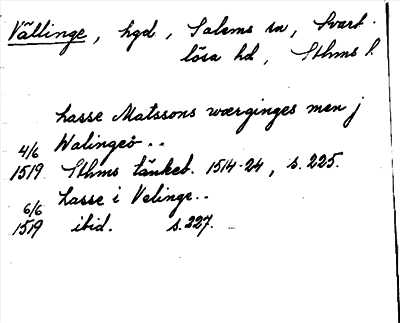 Vällinge, hgd, Salems sn, Svart-
lösa hd, Sthms l.
Lasse Matssons wærginges men j
4/6 Walingeö..
1519 Sthms tänkeb. 1514-24, s. 225.
6/6 Lasse i Velinge..
1519 ibid. s. 227.